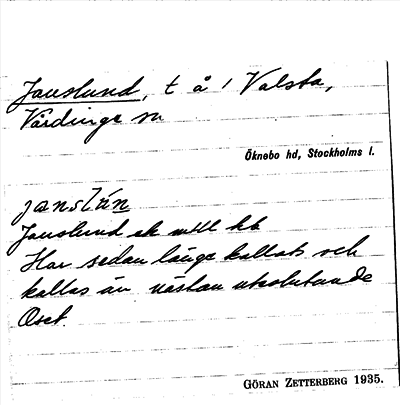 Janslund, t å 1 Valsta,
Vårdinge sn
Öknebo hd, Stockholms l.
janslún
Janslund ek mtll kb
Har sedan länge kallats och
kallas än nästan uteslutande
Oset.
GÖRAN ZETTERBERG 1935.